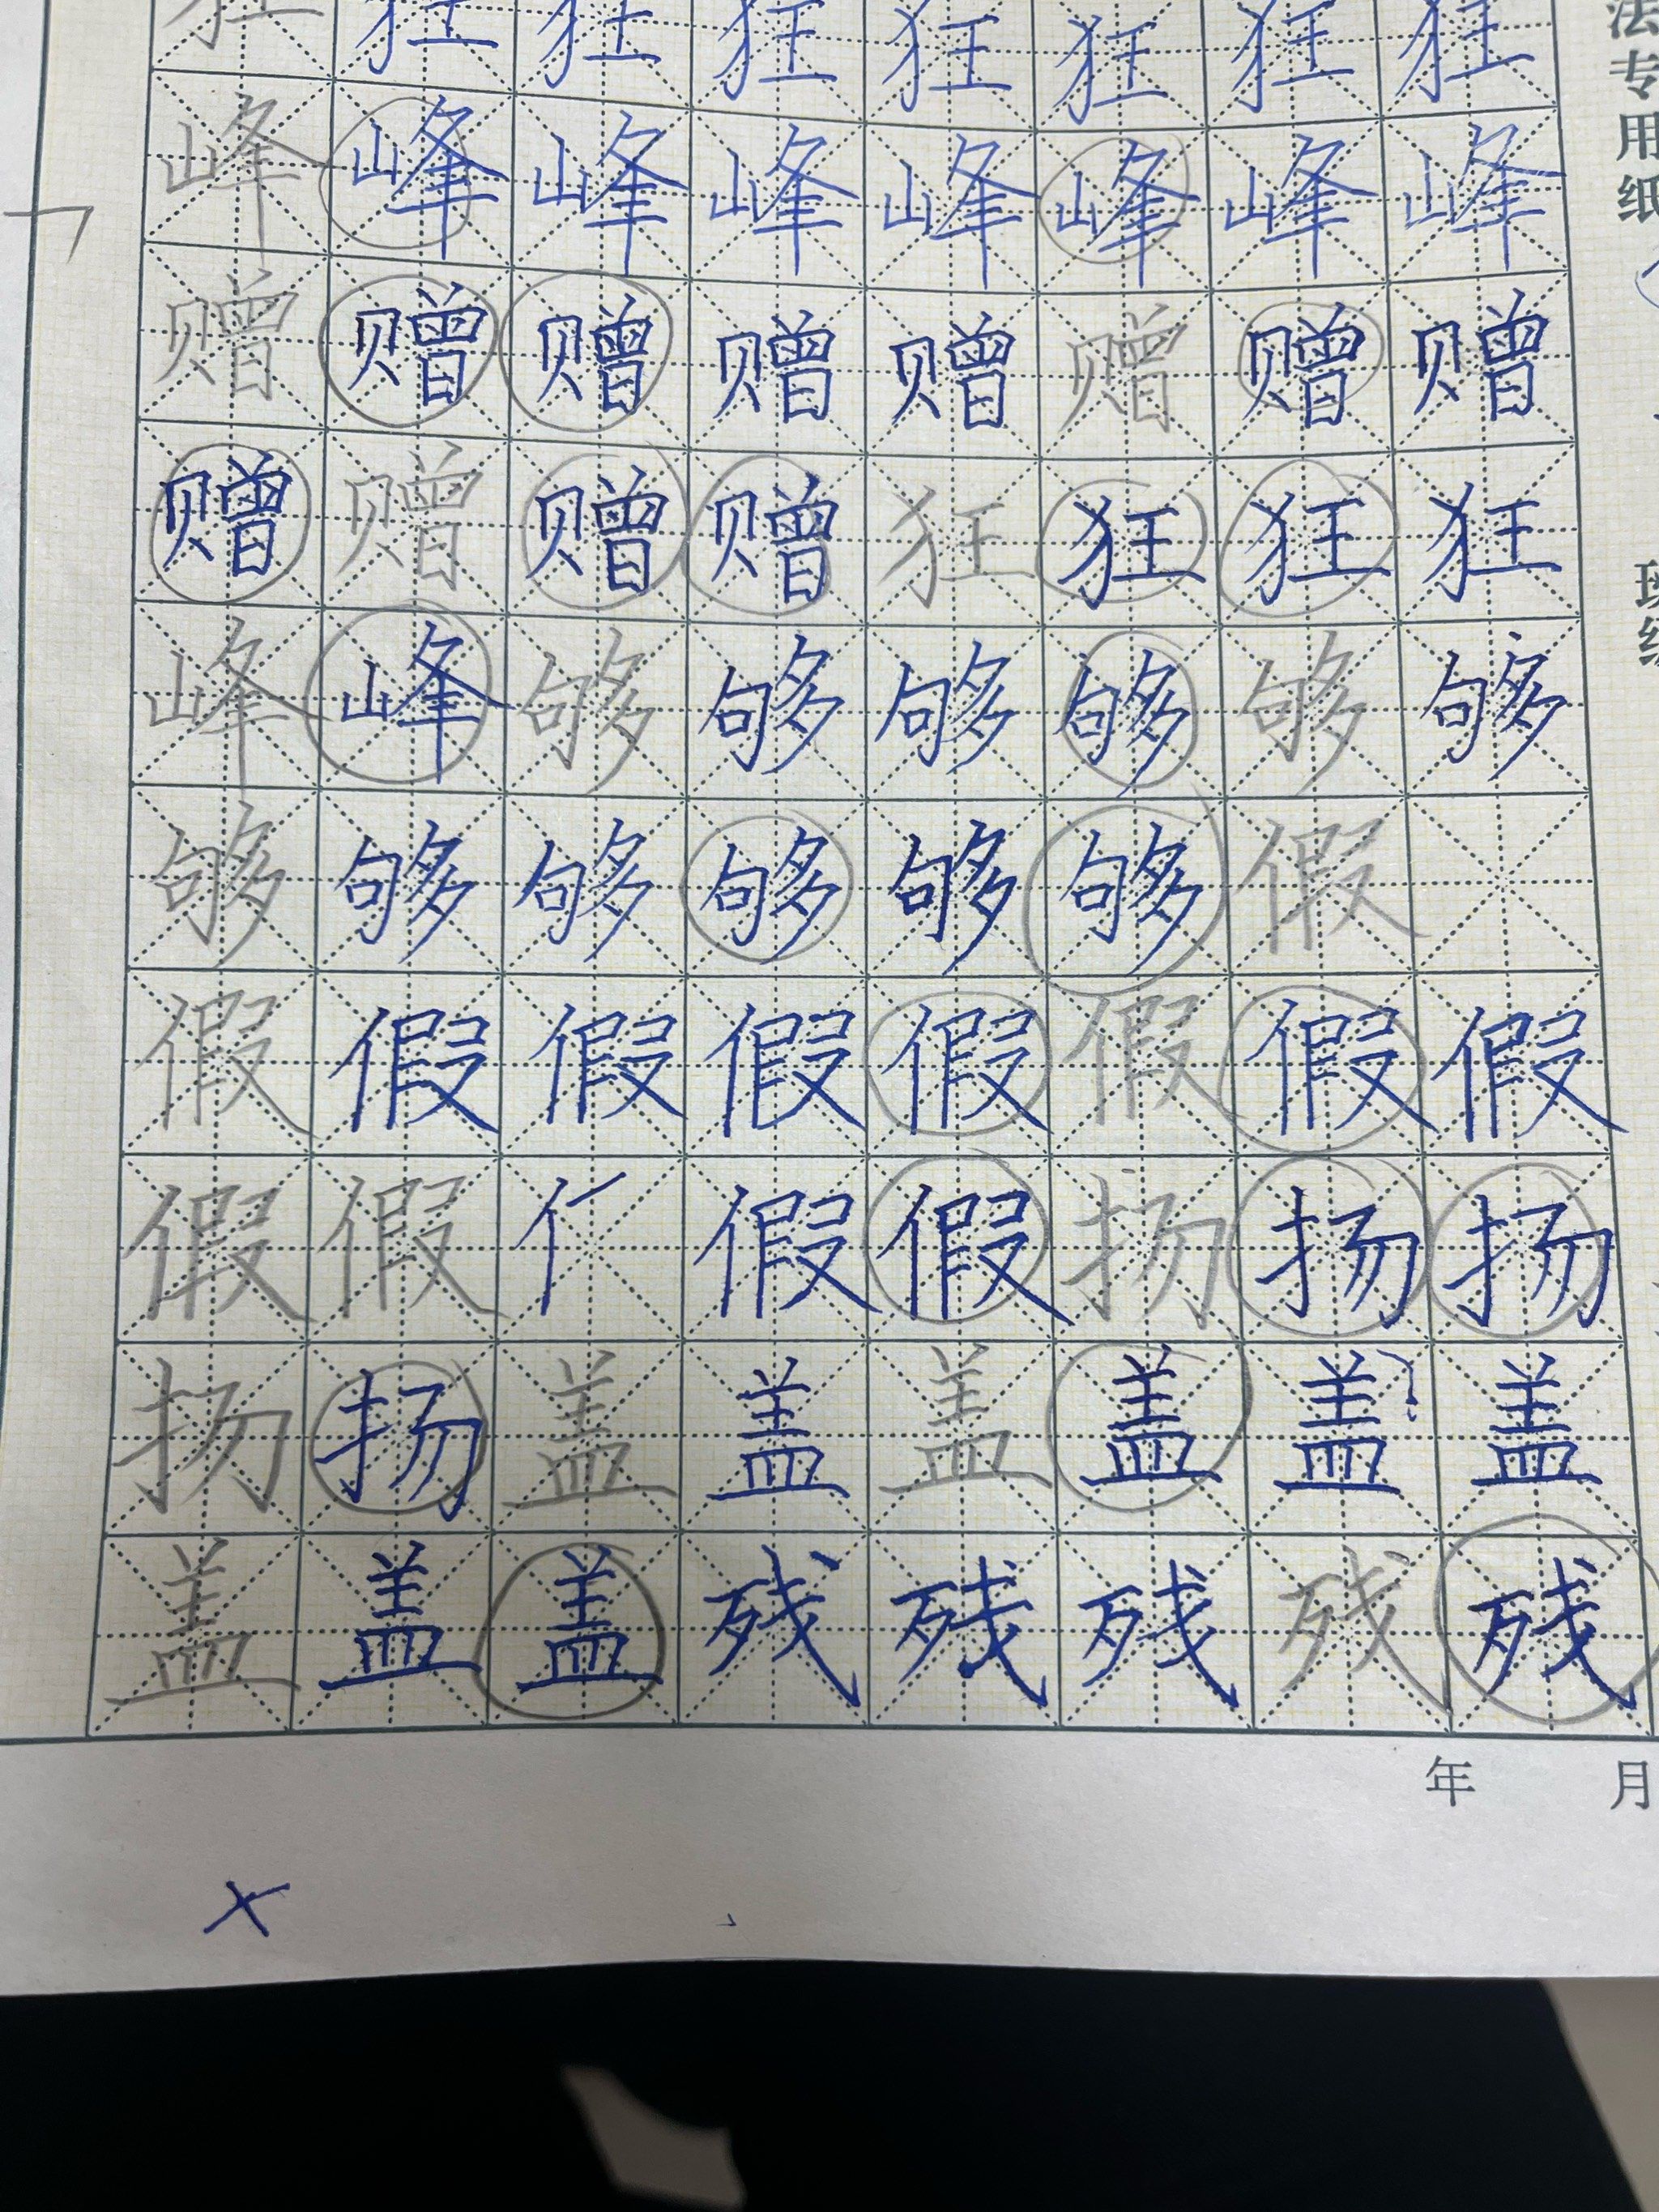 狂狂狂狂狂狂狂狂
峰峰峰峰峰峰峰峰
赠赠赠赠赠赠赠赠
赠赠赠赠狂狂狂狂
峰峰够够够够够够
够够够够够够假
假假假假假假假假
假假亻假假扬扬扬
扬扬盖盖盖盖盖盖
盖盖盖残残残残残
年 月
法专用纸